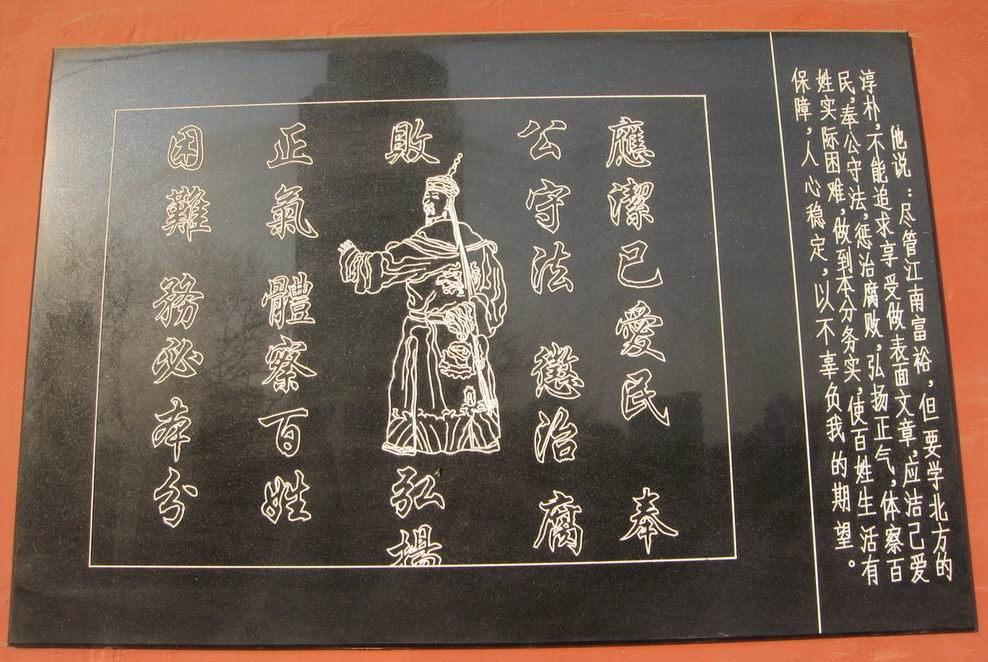 他说：尽管江南富裕，但要学北方的
淳朴，不能追求享受做表面文章，应洁己爱
民，奉公守法，惩治腐败，弘扬正气，体察百
姓实际困难，做到本分务实，使百姓生活有
保障，人心稳定，以不辜负我的期望。
應潔己愛民 奉
公守法 懲治 腐
敗 弘揚
正氣 體察百姓
困難 務必本分